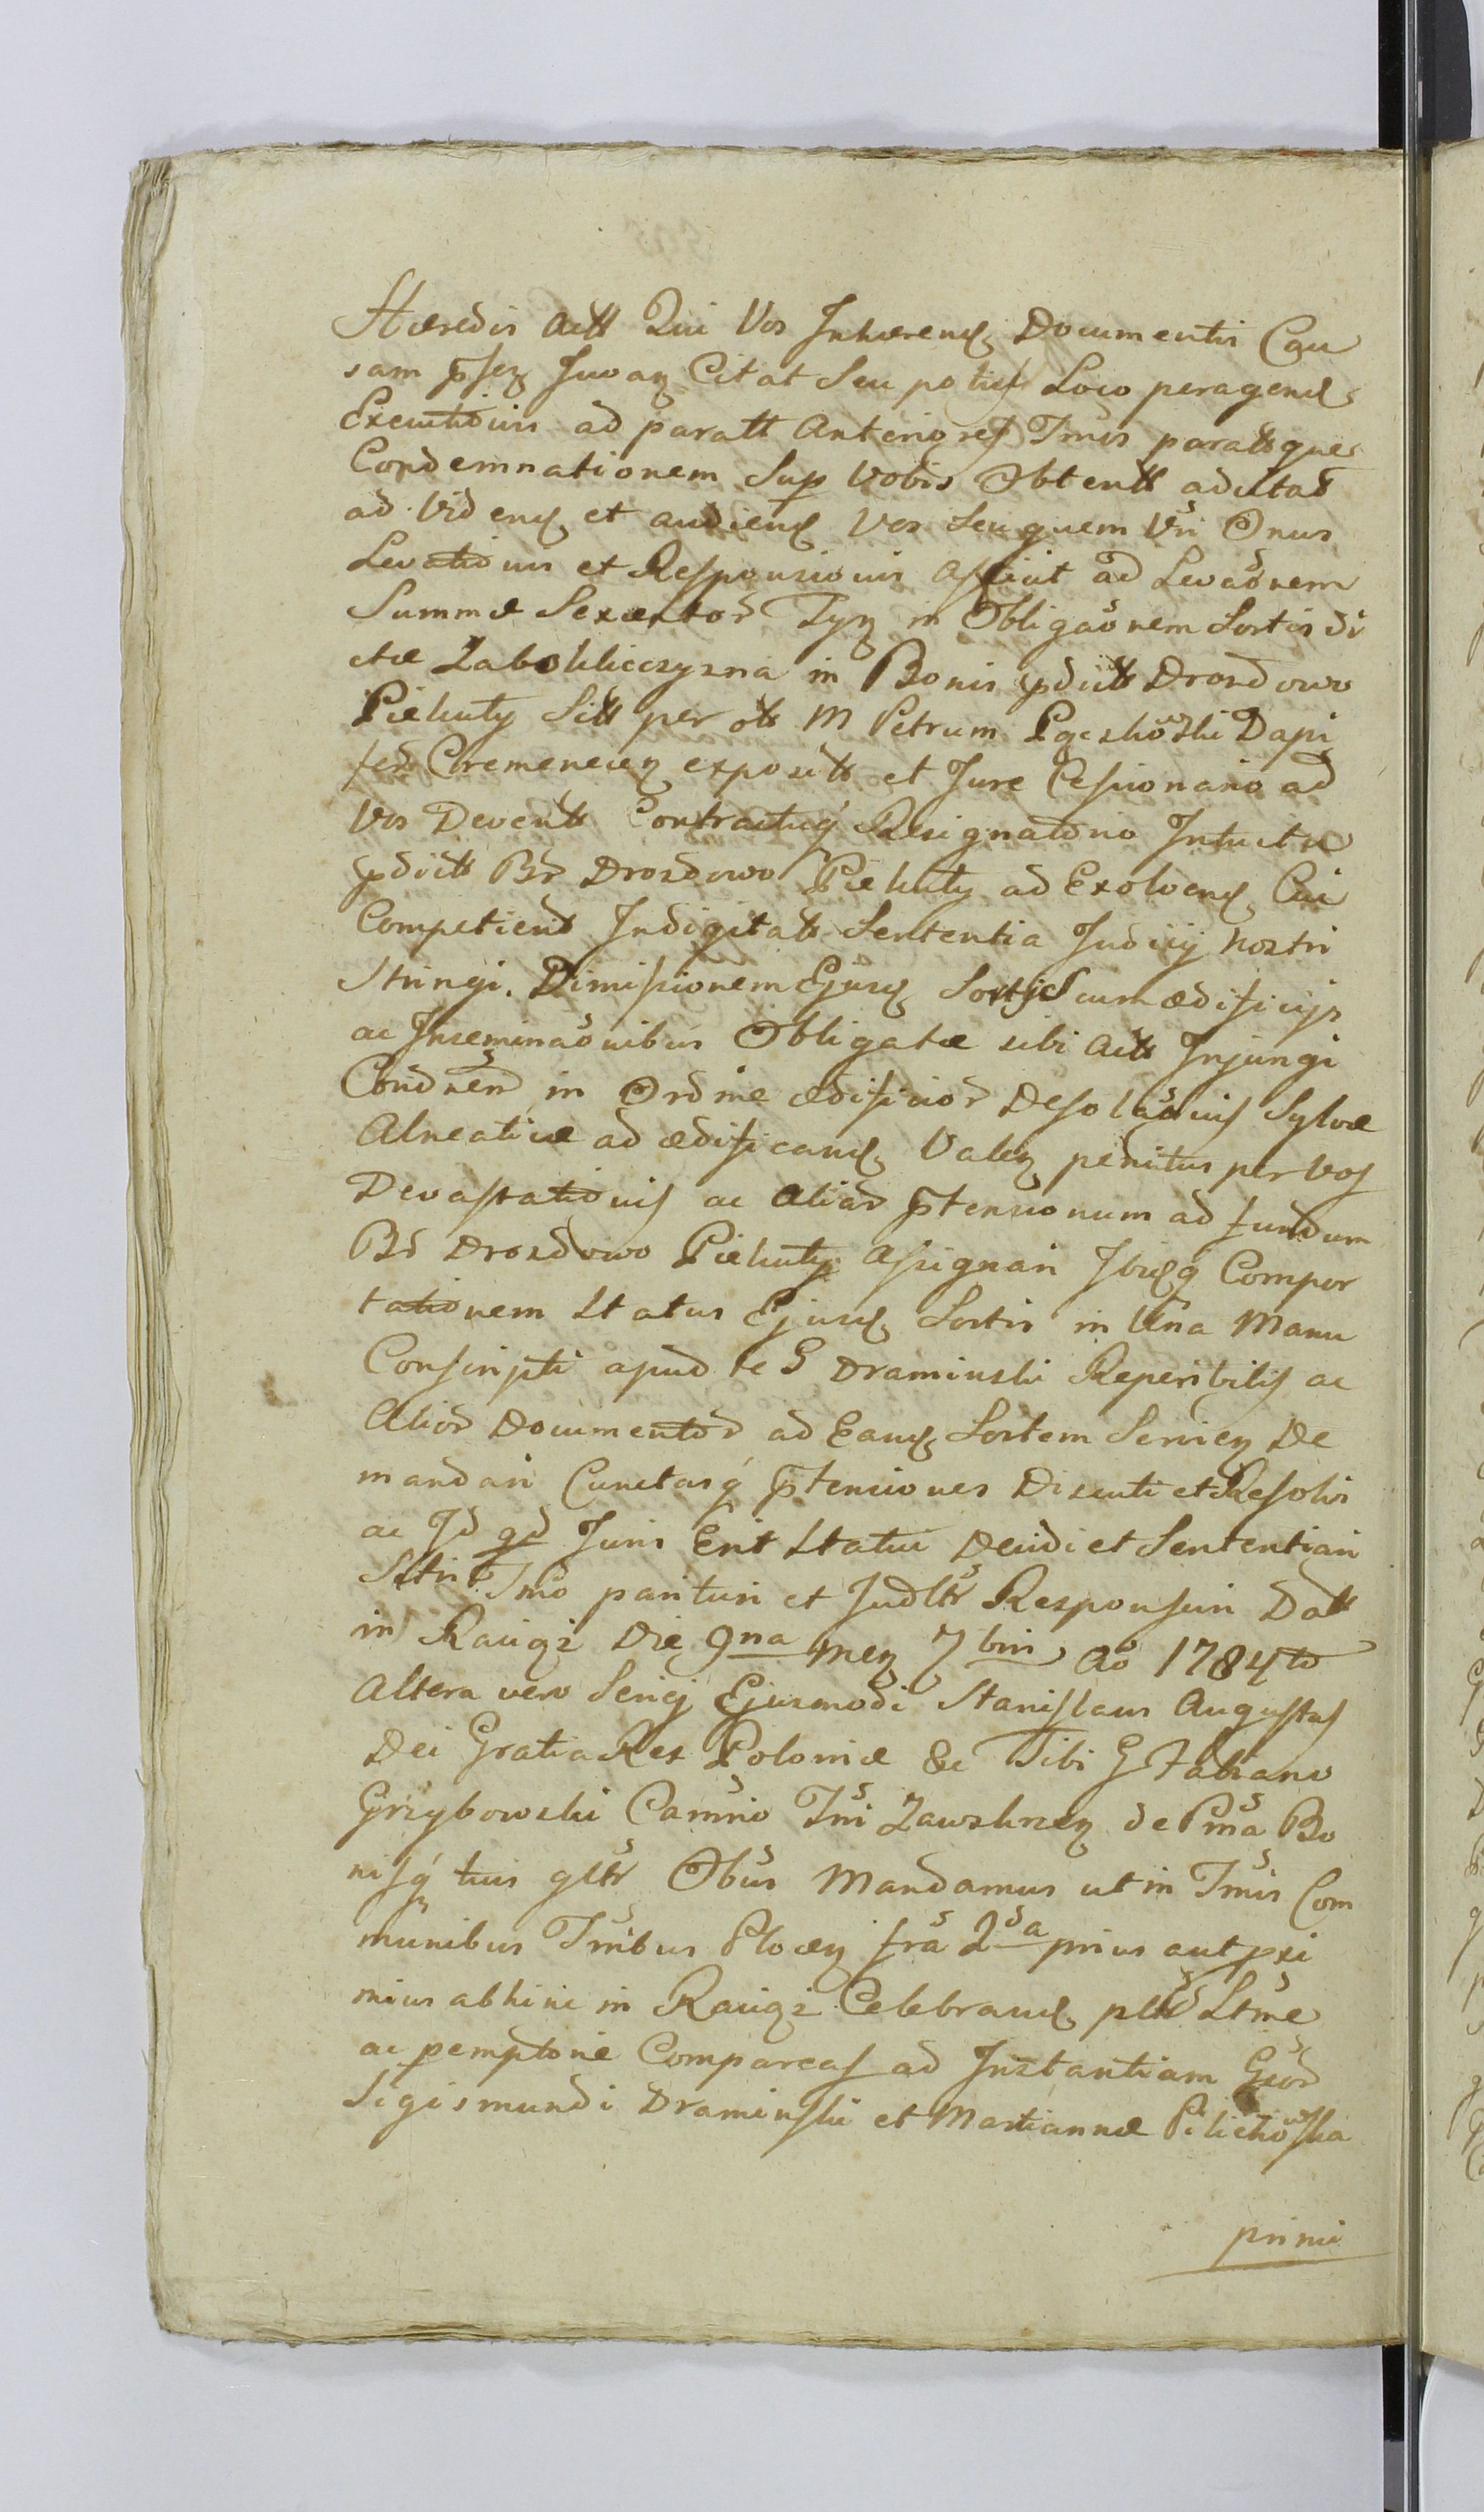 Hæredis Actt Qui Vos Inhærend Documentis Cau
sam pñsez Juvaz Citat Seu potius Loco peragend
Executionis ad paratt Anterioris Tñis parattque
Condemnationem Sup Vobis Obtentt adcitat
ad Vidend et audiend Vos Seu quem Vñ Onus
Levationis et Responsionis afficit ad Levaõnem
Summæ Sexcentor Tyz in Obligaõnem Sortis di
ctæ Zabokliczyzna in Bonis pdictt Drozdowo
Piekuty Sitt per ott M Petrum Pęczkowski Dapi
fer Cremenecez exposítt et Jure Cessionario ad
Vos Devenitt Contractuq Resignatorio Intuitu
pdictt Br Drozdowo Piekuty ad Exolvend Cui
Competierit Indigitatt Sententia Judicij Nostri
Stringi. Dimissionem Ejusd Sortis cum ædificijs
ac Inseminaõnibus Obligatæ sibi Actt Injungi
Condñem in Ordine ædificior Desolaõnis Sylvæ
Alneaticæ ad ædificand Valez penitus per Vos
Devastationis ac Aliar ptensionum ad fundum
Br Drozdowo Piekuty Assignari Ibidq Compor
tationem Status Ejusd Sortis in Una Manu
Conscripti apud te G Draminski Reperibilis ac
Alior Documentor ad Eand Sortem Serviez De
mandari Cunctasq ptensiones Discuti et Resolvi
ac Id qd Juris Erit Statui Decidi et Sententiari
Tño parituri et Judltr Responsuri Datt
in Raciąż Die 9na Mez 7bris Ao 1784to
Altera vero Seriej Ejusmodi Stanislaus Augustus
Dei Gratia Rex Poloniæ &c Tibi G Fabiano
Grzybowski Camrio Tñi Zawskrzez de Psña Bo
nisq tuis gltr Obus Mandamus ut in Tñis Com
munibus Tñibus Plocez fra 2da prius aut pxi
mius abhinc in Raciąż Celebrand pltr Ltme
ac pemptorie Compareas ad Instantiam Gñor
Sigismundi Draminski et Martiannæ Pilichowska
primi